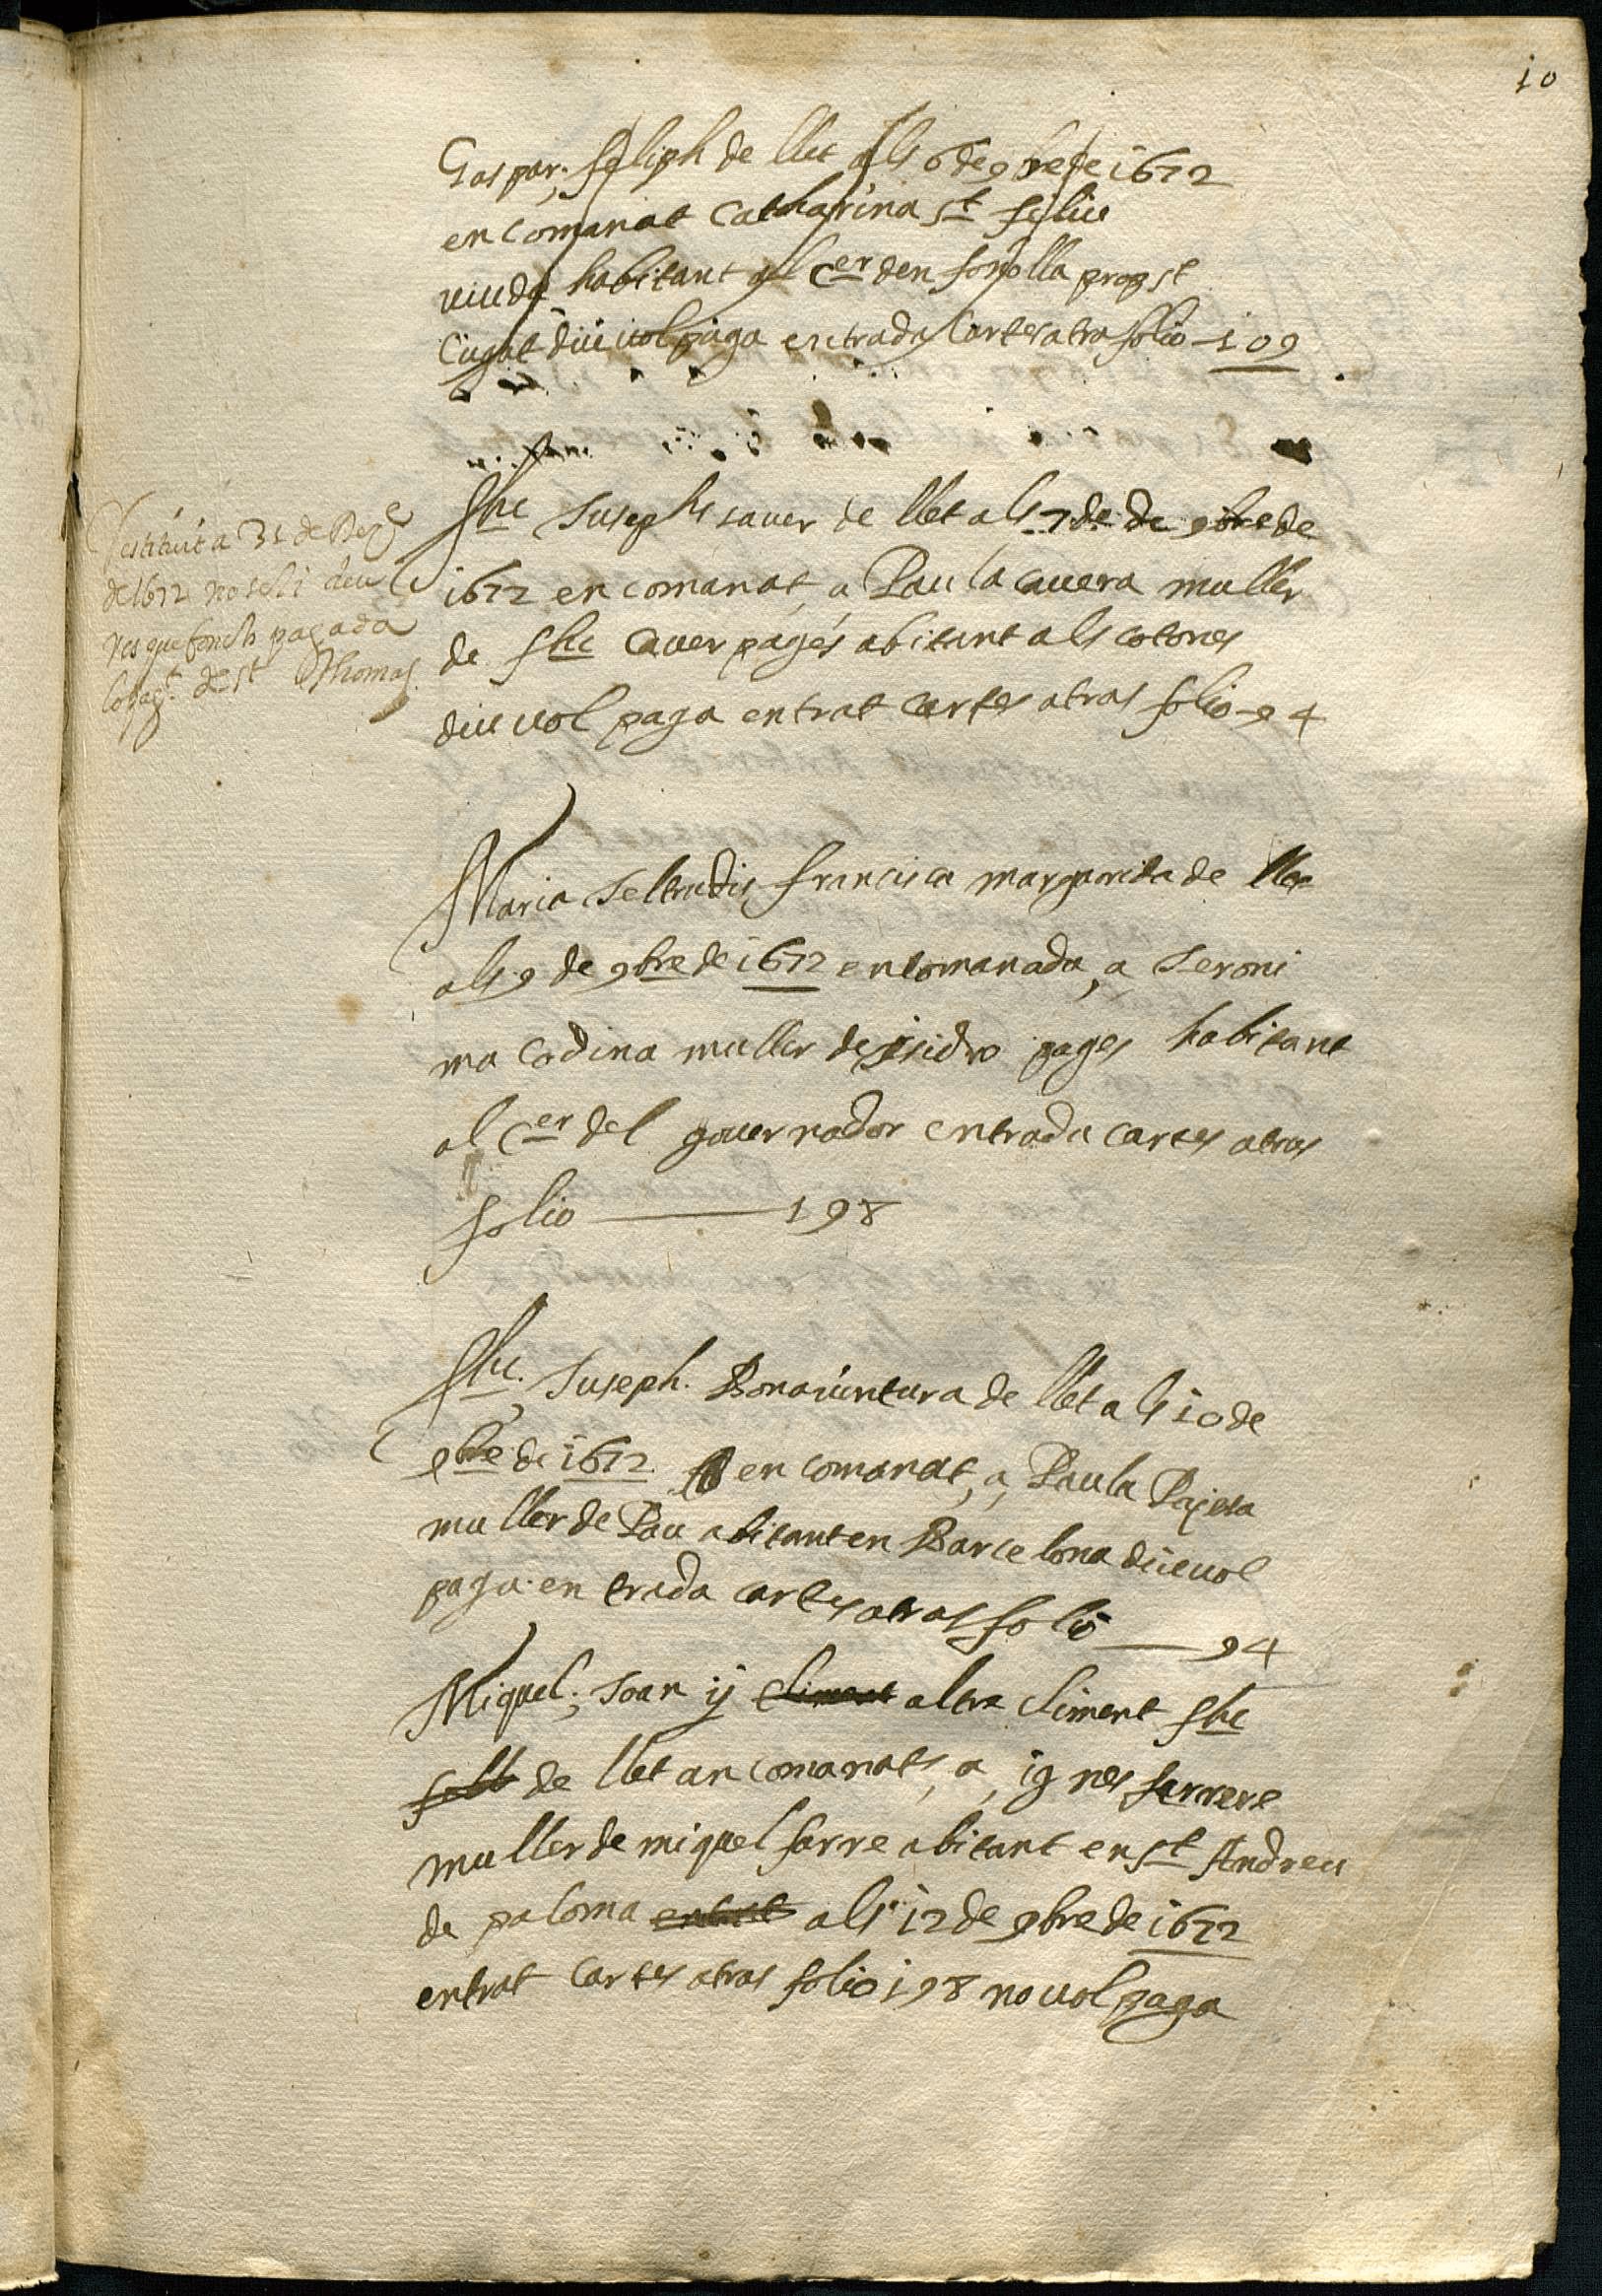 10
Gaspar; feliph de llet als 6 de 9bre de 1672
en comanat Catharina st feliu
viuda habitant al Cer den fonolla prop st
Cugat diu vol paga entrada Cartes atra folio 109
restituit a 31 de Dezre
de 1672 no se li deu
res que fonch pagada
lo pagt. de st Thomas.
fhc Juseph saver de llet als 7 de de 9bre de
1672 en comanat, a Paula Cavera muller
de fhc Caver pagés abitant als cotones
diu vol paga entrat cartes atras folio 94
Maria Jeltrudis francisca margarida de llet
als 9 de 9bre de 1672 encomanada, a Jeroni
ma Codina muller de isidro pages habitant
al Cer del governador entrada cartes atras
folio 198
fhc. Juseph. Bonaventura de llet als 10 de
9bre de 1672 en comanat, a, Paula Pajesa
muller de Pau abitant en Barcelona diu vol
paga en trada cartes atras folio 94
Miquel; Joan ÿ Climent altra Climent fhc
de llet an comanats, a, ignes farrere
muller de miquel farre abitant en st Andreu
de paloma entrat als 12 de 9bre de 1672
entrat cartes atras folio 198 no vol paga